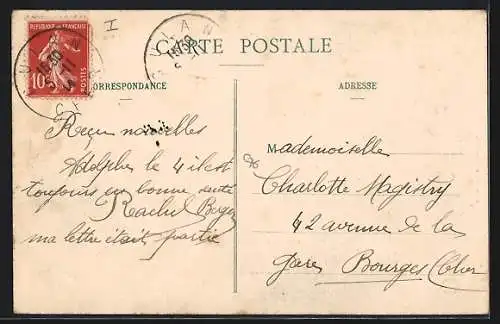 I
REPUBLIQUE FRANÇAISE
10
POSTES
CARTE POSTALE
CORRESPONDANCE
ADRESSE
Reçu nouvelles
Adolphe le 4 il est
toujours en bonne santé
Rachel
ma lettre était partie
Mademoiselle
Charlotte Magistry
42 avenue de la
gare Bourges (Cher